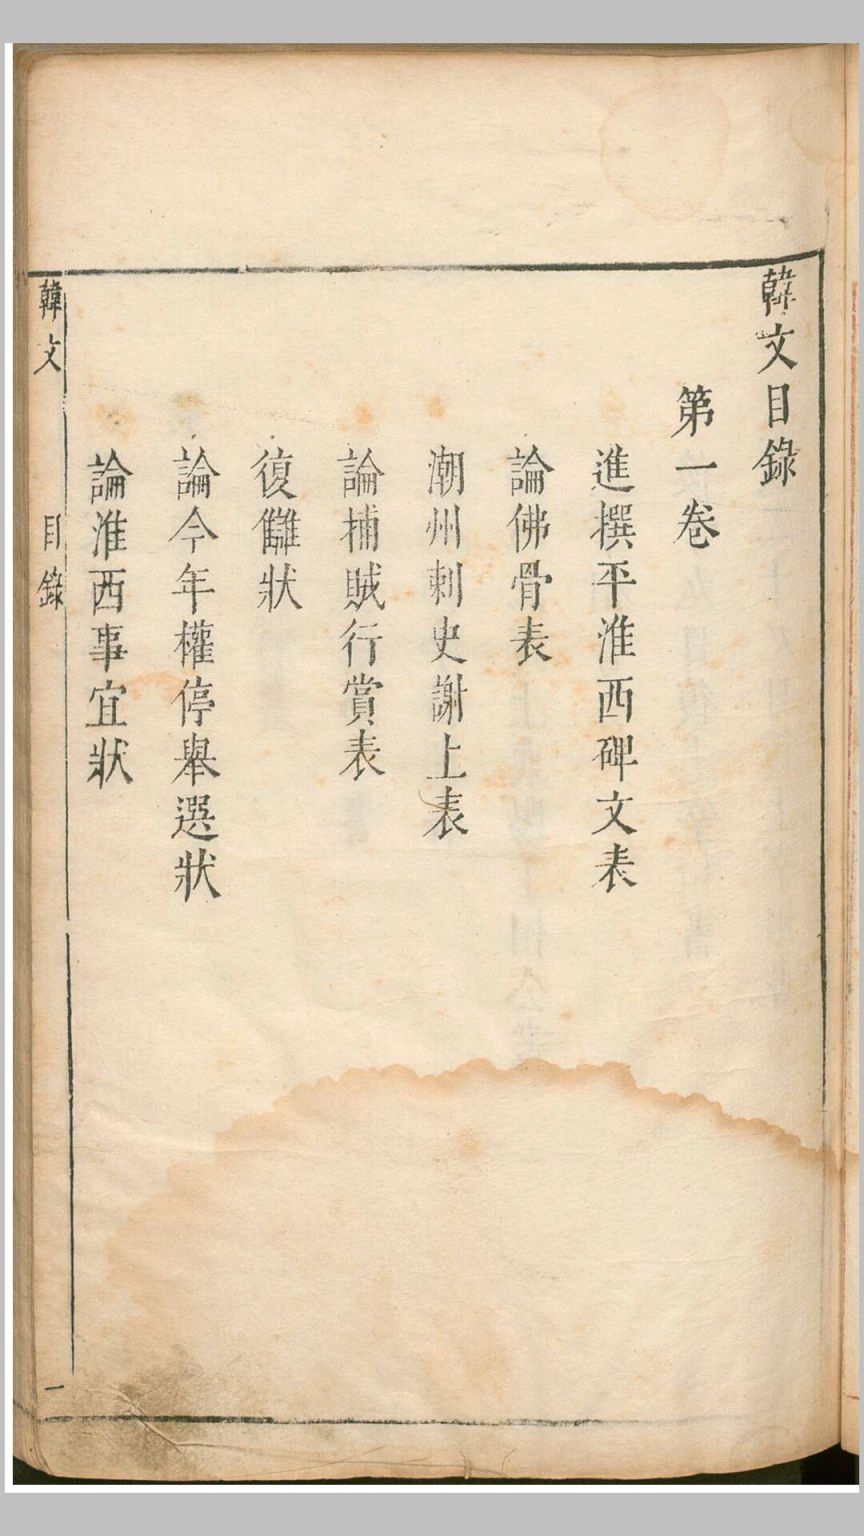 韓文目錄
第一卷
進撰平淮西碑文表
論佛骨表
潮州刺史謝上表
論捕賊行賞表
復讎狀
論今年權停舉選狀
論淮西事宜狀
韓文 目錄 一